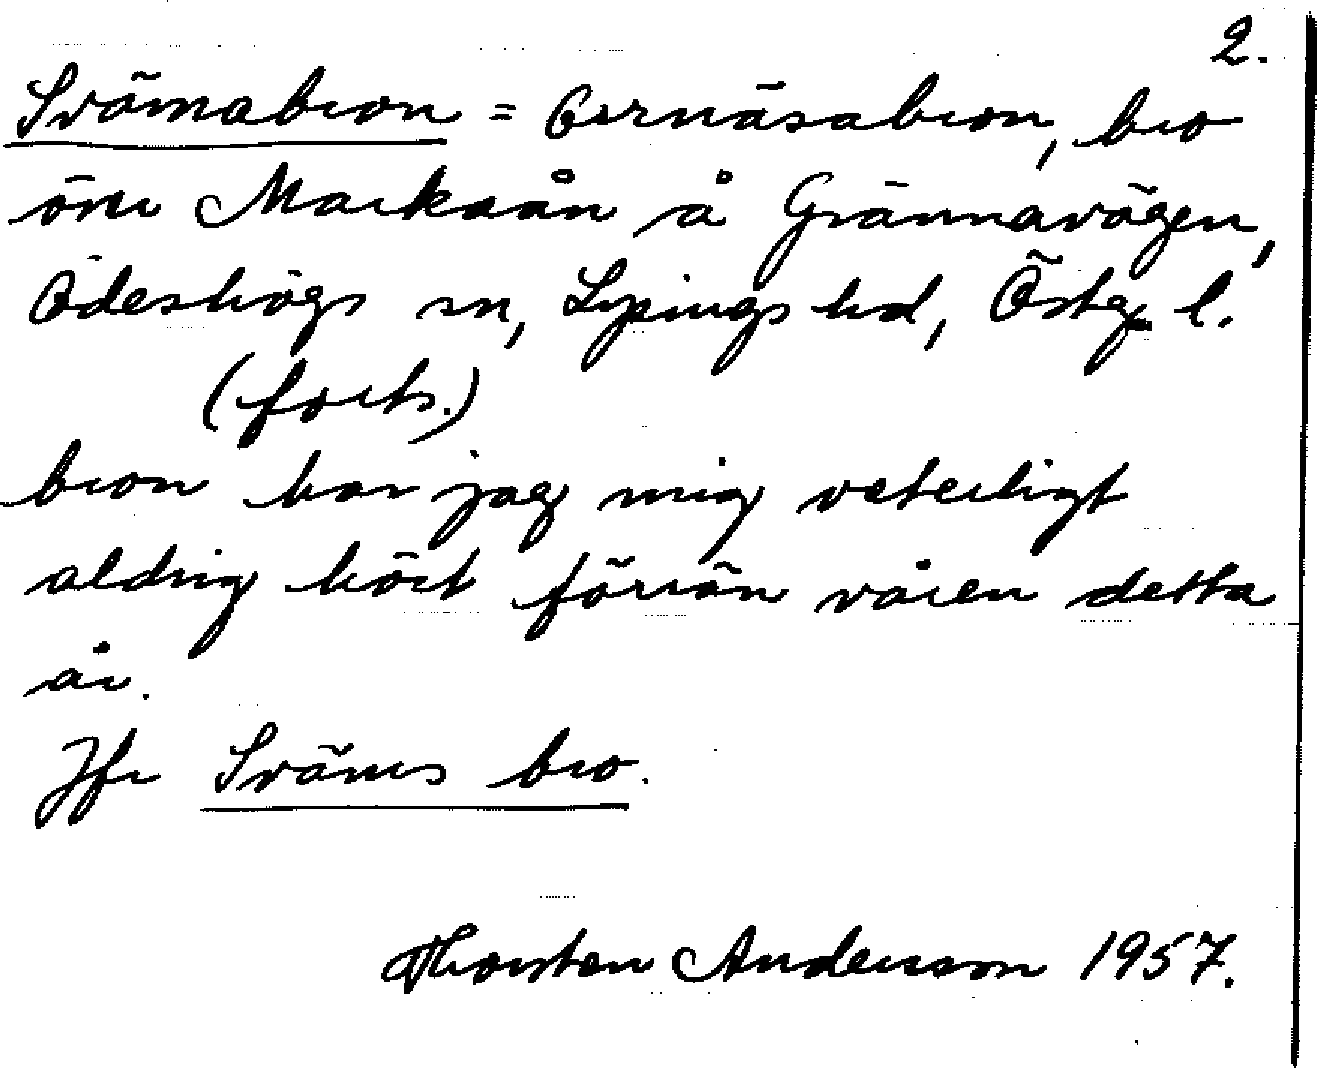 2.
Svämabron = Orrnäsabron, bro
över Markaån å Grännavägen,
Ödeshögs sn, Lysings hd, Östg. l.
(forts.)
bron har jag mig veterligt
aldrig hört förrän våren detta
år.
Jfr Sväms bro.
Thorsten Andersson 1957.